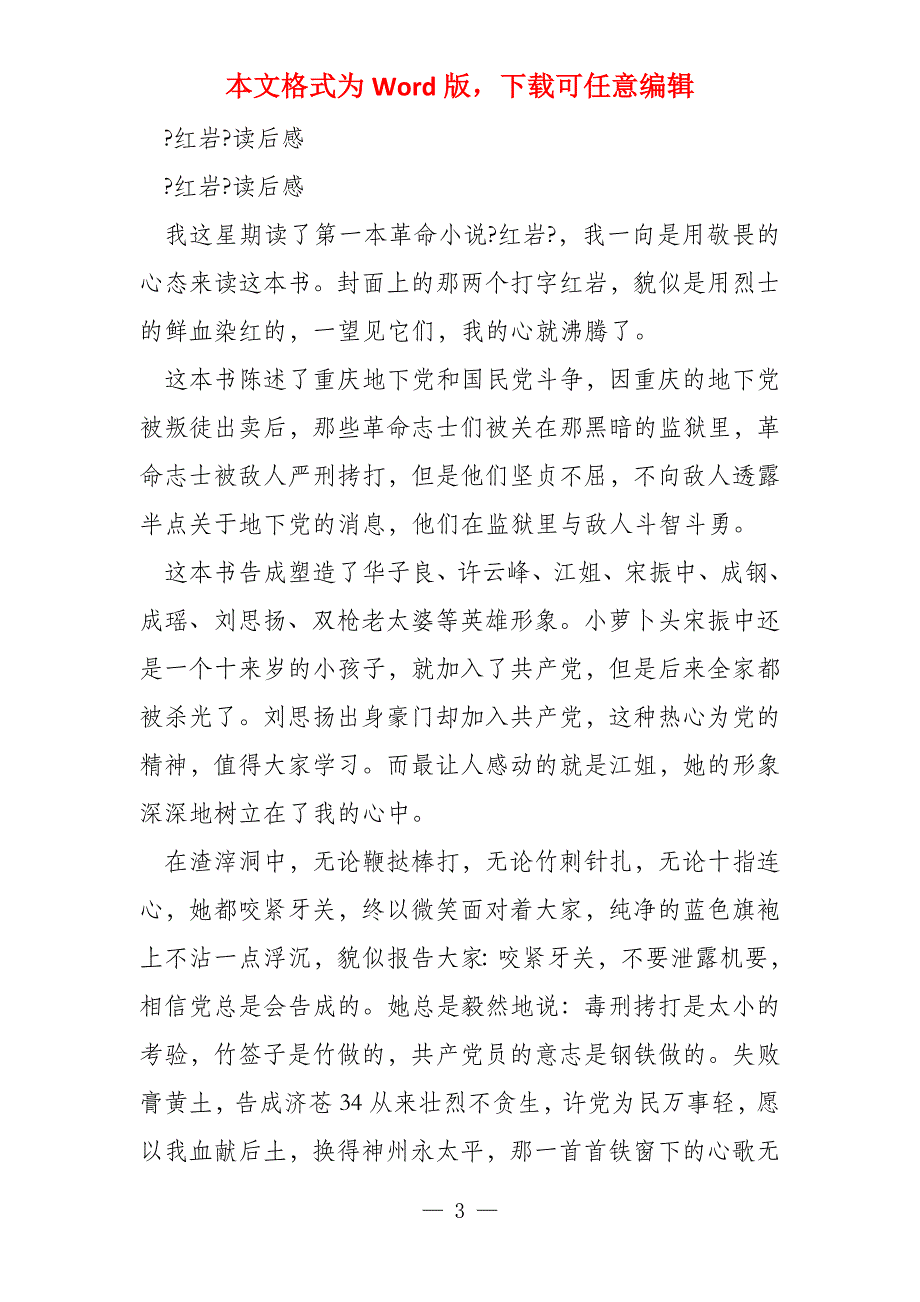 本文格式为 Word 版，下载可任意编辑
?红岩?读后感
?红岩?读后感
我这星期读了第一本革命小说?红岩?，我一向是用敬畏的
心态来读这本书。封面上的那两个打字红岩，貌似是用烈士
的鲜血染红的，一望见它们，我的心就沸腾了。
这本书陈述了重庆地下党和国民党斗争，因重庆的地下党
被叛徒出卖后，那些革命志士们被关在那黑暗的监狱里，革
命志士被敌人严刑拷打，但是他们坚贞不屈，不向敌人透露
半点关于地下党的消息，他们在监狱里与敌人斗智斗勇。
这本书告成塑造了华子良、许云峰、江姐、宋振中、成钢、
成瑶、刘思扬、双枪老太婆等英雄形象。小萝卜头宋振中还
是一个十来岁的小孩子，就加入了共产党，但是后来全家都
被杀光了。刘思扬出身豪门却加入共产党，这种热心为党的
精神，值得大家学习。而最让人感动的就是江姐，她的形象
深深地树立在了我的心中。
在渣滓洞中，无论鞭挞棒打，无论竹刺针扎，无论十指连
心，她都咬紧牙关，终以微笑面对着大家，纯净的蓝色旗袍
上不沾一点浮沉，貌似报告大家：咬紧牙关，不要泄露机要，
相信党总是会告成的。她总是毅然地说：毒刑拷打是太小的
考验，竹签子是竹做的，共产党员的意志是钢铁做的。失败
膏黄土，告成济苍 34 从来壮烈不贪生，许党为民万事轻，愿
以我血献后土，换得神州永太平，那一首首铁窗下的心歌无
— 3 —